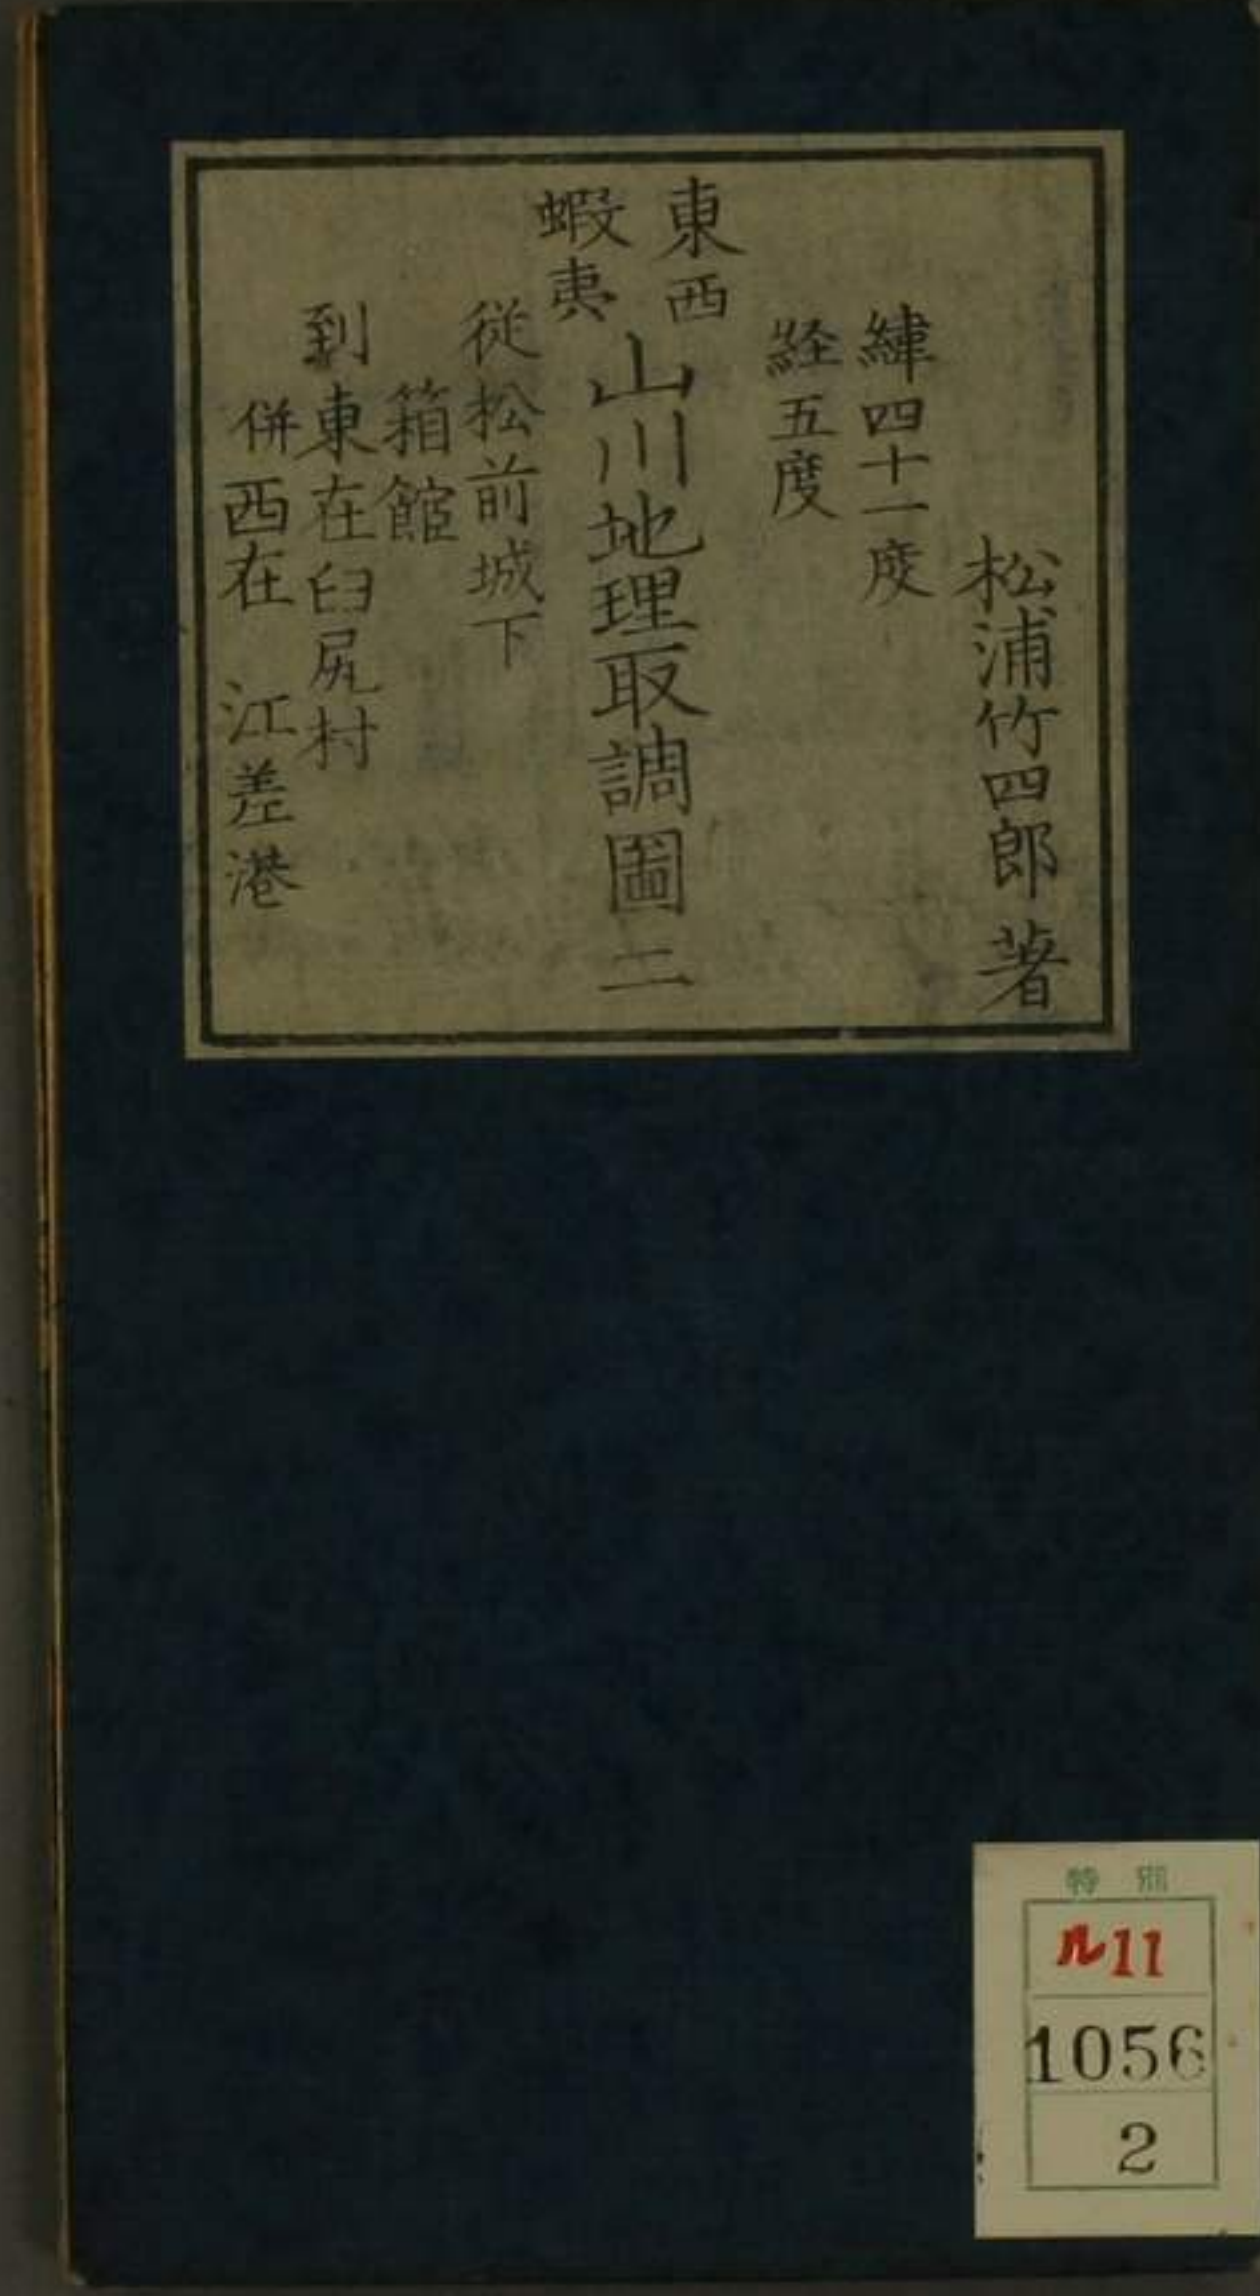 松浦竹四郎著
緯四十一度
経五度
東西
蝦夷
山川地理取調圖二
従松前城下
箱館
到東在臼尻村
併西在 江差港
特別
ル11
1056
2